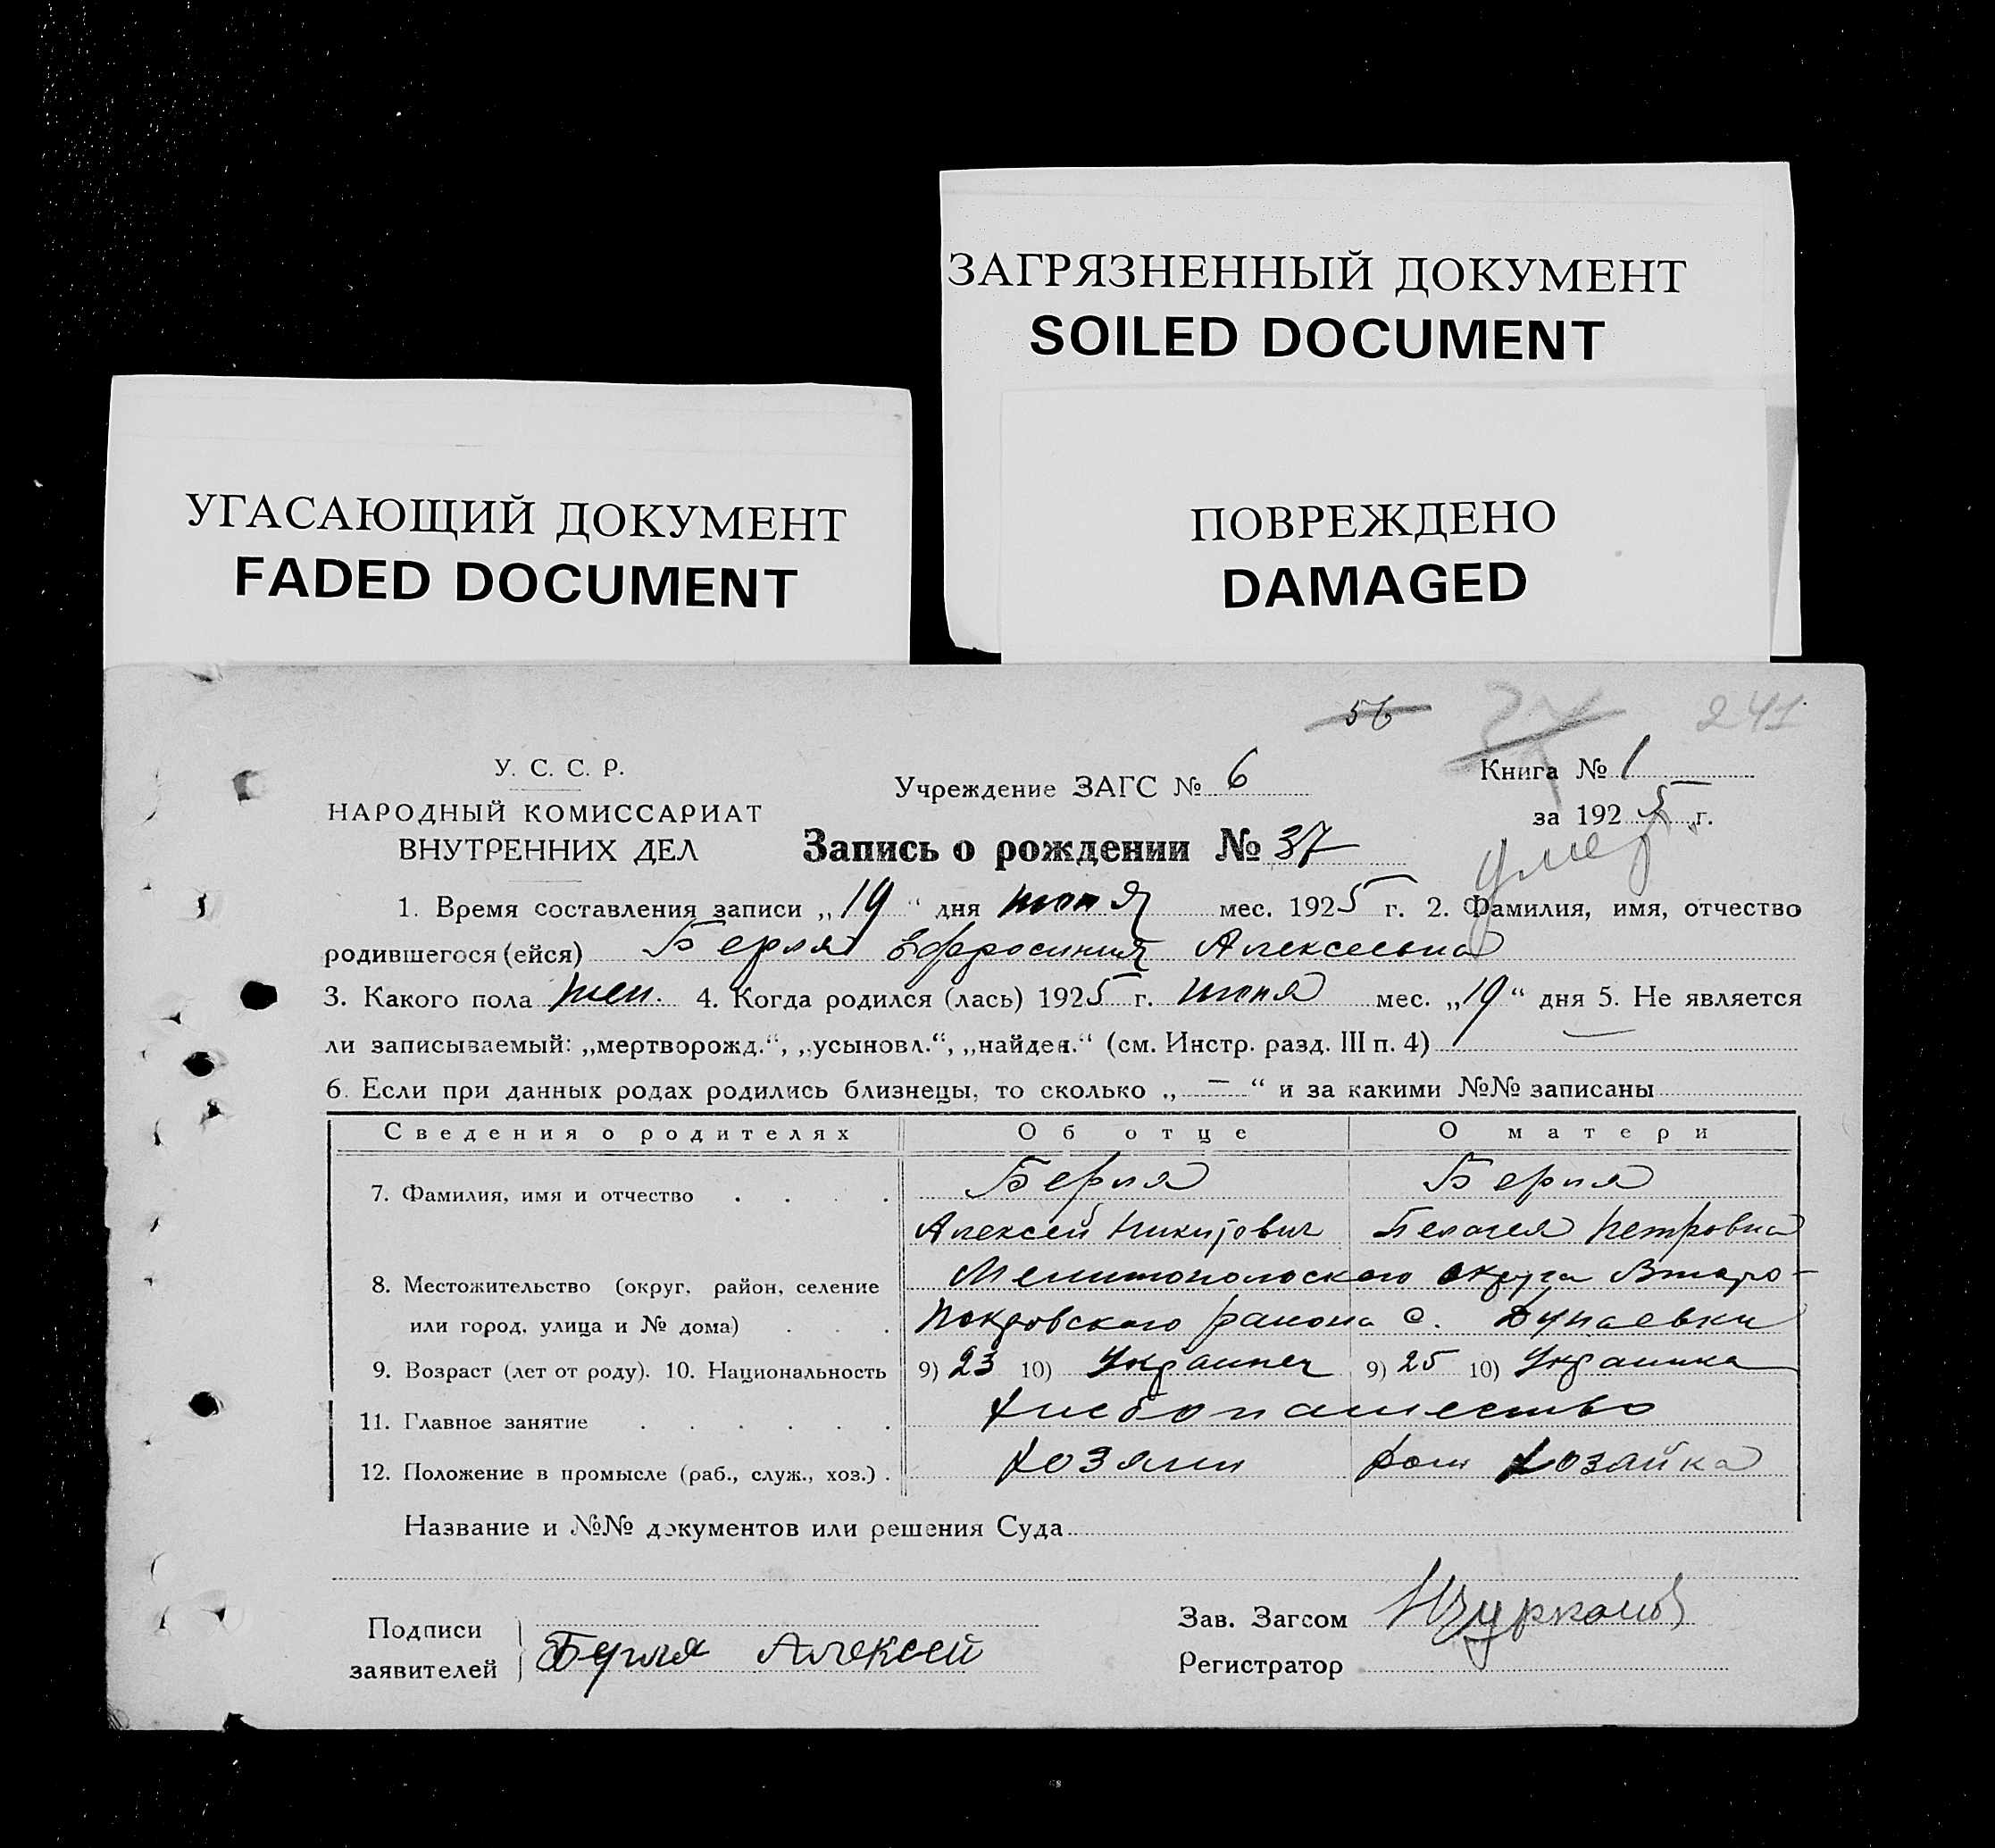 ЗАГРЯЗНЕННЫЙ ДОКУМЕНТ
SOILED DOCUMENT
УГАСАЮЩИЙ ДОКУМЕНТ
FADED DOCUMENT
ПОВРЕЖДЕНО
DAMAGED
56 241
У. С. С. Р.
НАРОДНЫЙ КОМИССАРИАТ
ВНУТРЕННИХ ДЕЛ
Учреждение ЗАГС № 6
Книга № 1
за 1925 г.
умер
Запись о рождении № 37
1. Время составления записи „19“ дня июня мес. 1925 г. 2. Фамилия, имя, отчество
родившегося (ейся) Ефросиния Алексеевна
3. Какого пола жен. 4. Когда родился (лась) 1925 г. июня мес. „19“ дня 5. Не является
ли записываемый: „мертворожд.“, „усыновл.“, „найден.“ (см. Инстр. разд. III п. 4) —
6. Если при данных родах родились близнецы, то сколько „—“ и за какими №№ записаны
Сведения о родителях Об отце О матери
7. Фамилия, имя и отчество
Алексей Никитович Пелагея Петровна
8. Местожительство (округ, район, селение Мелитопольского округа Втаро-
или город, улица и № дома) Покровского района с. Дунаевки
9. Возраст (лет от роду). 10. Национальность 9) 23 10) Украинец 9) 25 10) Украинка
11. Главное занятие Хлебопашество
12. Положение в промысле (раб., служ., хоз.) Хозяин дом хозайка
Название и №№ документов или решения Суда
Подписи
заявителей Алексей
Зав. Загсом
Регистратор